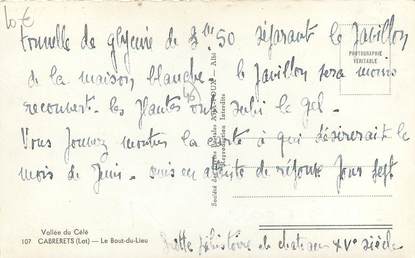 10€
tonnelle de glycine de 3 m 50 séparant le pavillon
de la maison blanche. le pavillon sera moins
recouvert. les plantes ont subi le gel.
Vous pouvez montrer la carte à qui désirerait le
mois de Juin. suis en attente de réponse pour Sept
PHOTOGRAPHIE
VÉRITABLE
Vallée du Célé
107 CABRERETS (Lot) — Le Bout-du-Lieu
préhistoire château XVe siècle